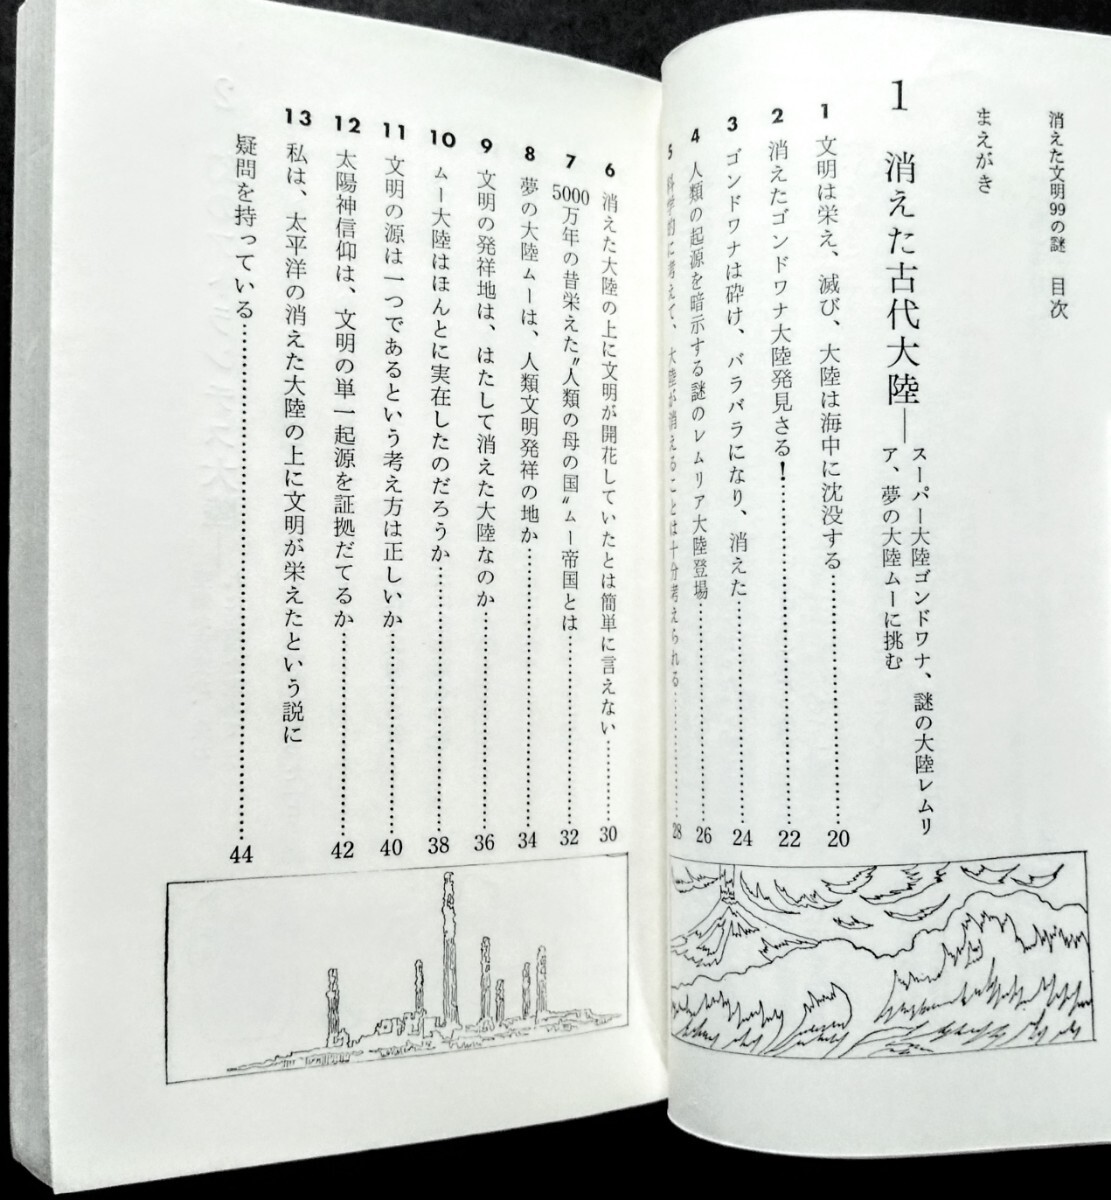 消えた文明99の謎　目次
まえがき
1　消えた古代大陸――
スーパー大陸ゴンドワナ、謎の大陸レムリ
ア、夢の大陸ムーに挑む
1　文明は栄え、滅び、大陸は海中に沈没する……………20
2　消えたゴンドワナ大陸発見さる！……………22
3　ゴンドワナは砕け、バラバラになり、消えた……………24
4　人類の起源を暗示する謎のレムリア大陸登場……………26
5　科学的に考えて、大陸が消えることは十分考えられる……………28
6　消えた大陸の上に文明が開花していたとは簡単に言えない……………30
7　5000万年の昔栄えた〝人類の母の国〟ムー帝国とは……………32
8　夢の大陸ムーは、人類文明発祥の地か……………34
9　文明の発祥地は、はたして消えた大陸なのか……………36
10　ムー大陸はほんとに実在したのだろうか……………38
11　文明の源は一つであるという考え方は正しいか……………40
12　太陽神信仰は、文明の単一起源を証拠だてるか……………42
13　私は、太平洋の消えた大陸の上に文明が栄えたという説に
疑問を持っている……………44